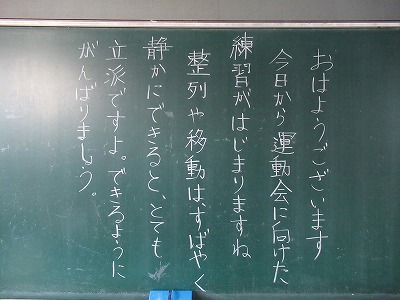 おはようございます
今日から運動会に向けた
練習がはじまりますね
整列や移動は、すばやく
静かにできると、とても
立派ですよ。できるように
がんばりましょう。